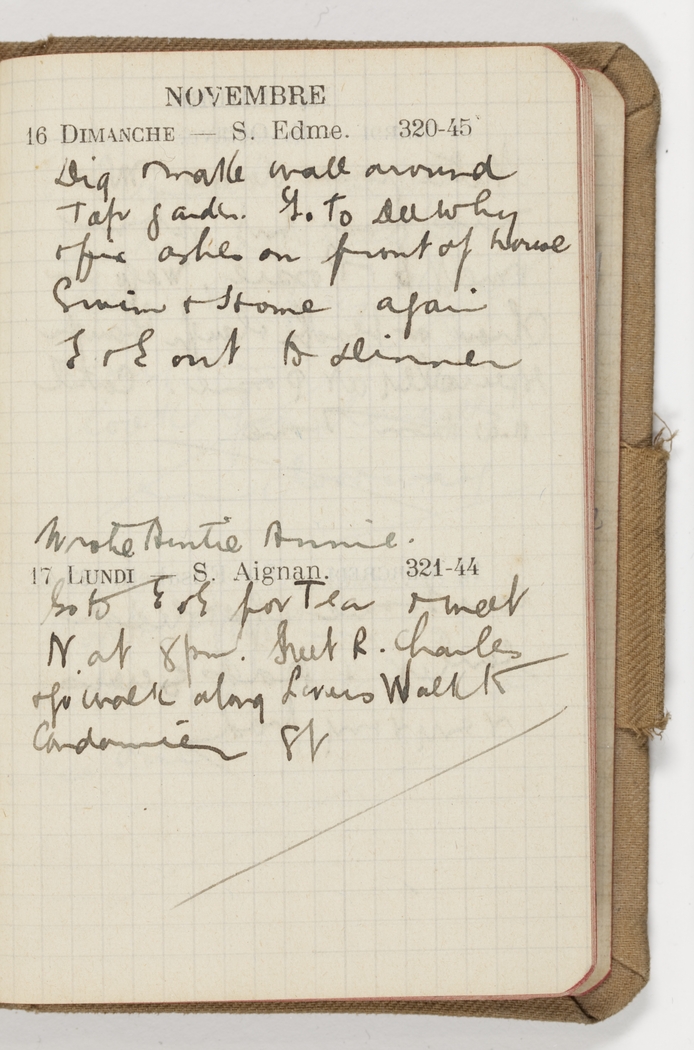 NOVEMBRE
16 DIMANCHE — S. Edme. 320-45
Dig & make wall around
Tap garden. Go to Dee Why
& fix ashes on front of house
Swim & Home again
E & E out to dinner
Wrote Auntie Annie.
17 LUNDI — S. Aignan. 321-44
Go to E & E for Tea & meet
N. at 8pm. Meet R. Charles
& go walk along Lovers Walk to
St